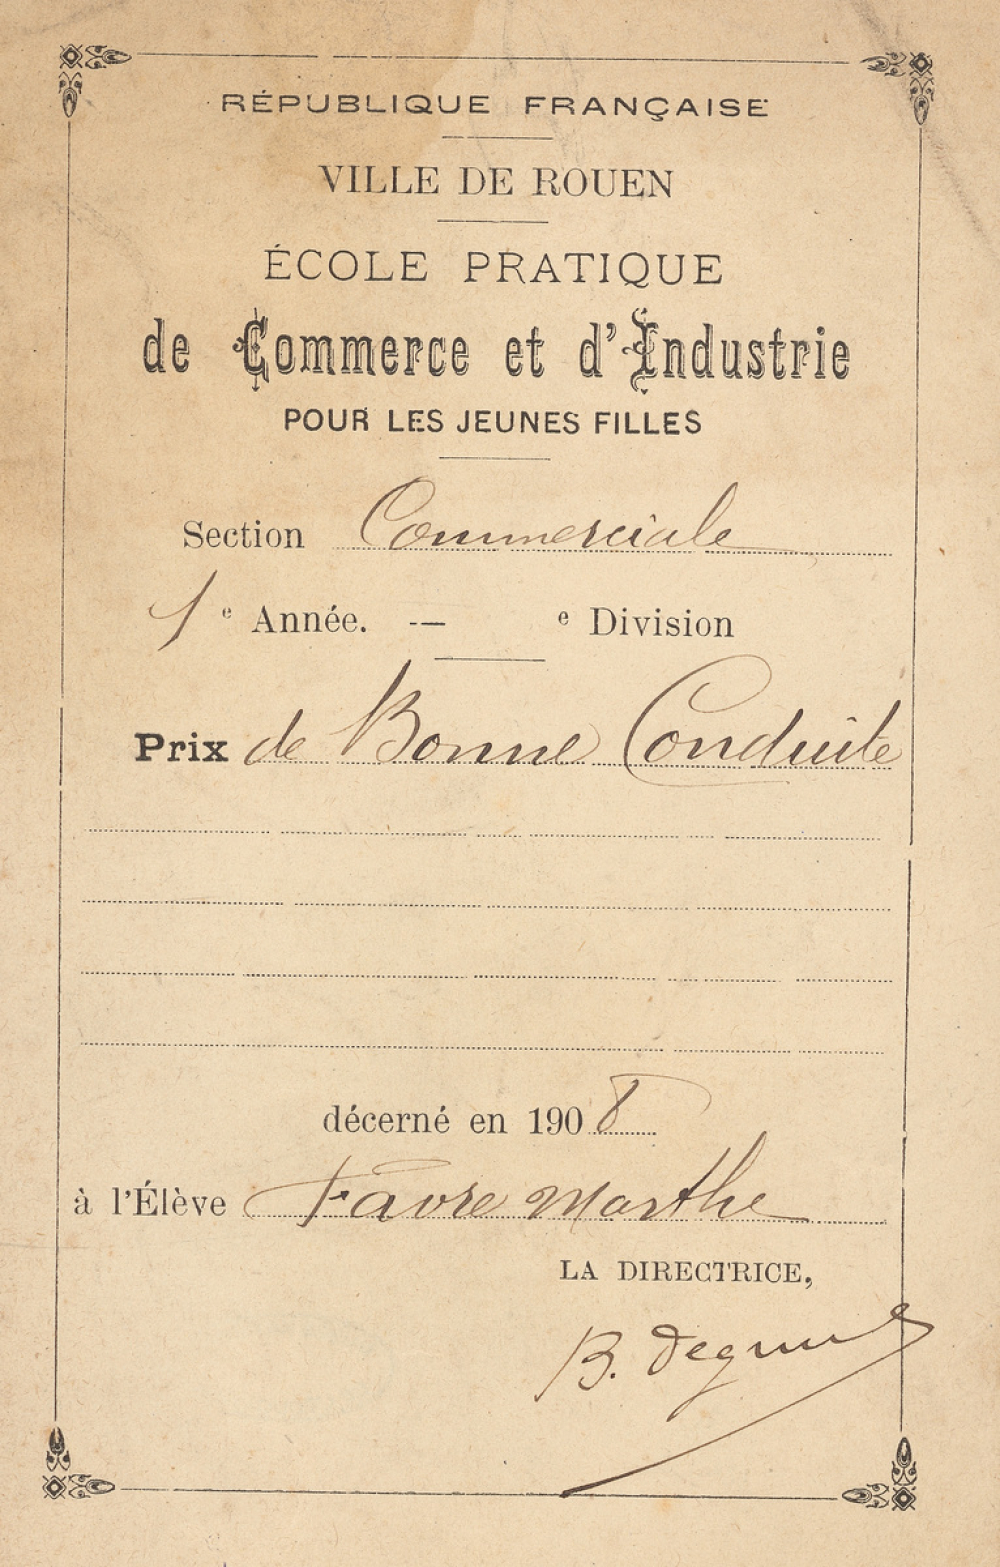 RÉPUBLIQUE FRANÇAISE
VILLE DE ROUEN
ÉCOLE PRATIQUE
de Commerce et d'Industrie
POUR LES JEUNES FILLES
Section Commerciale
1e Année. — e Division
Prix de Bonne Conduite
décerné en 1908
à l'Élève Favre Marthe
LA DIRECTRICE,
B.